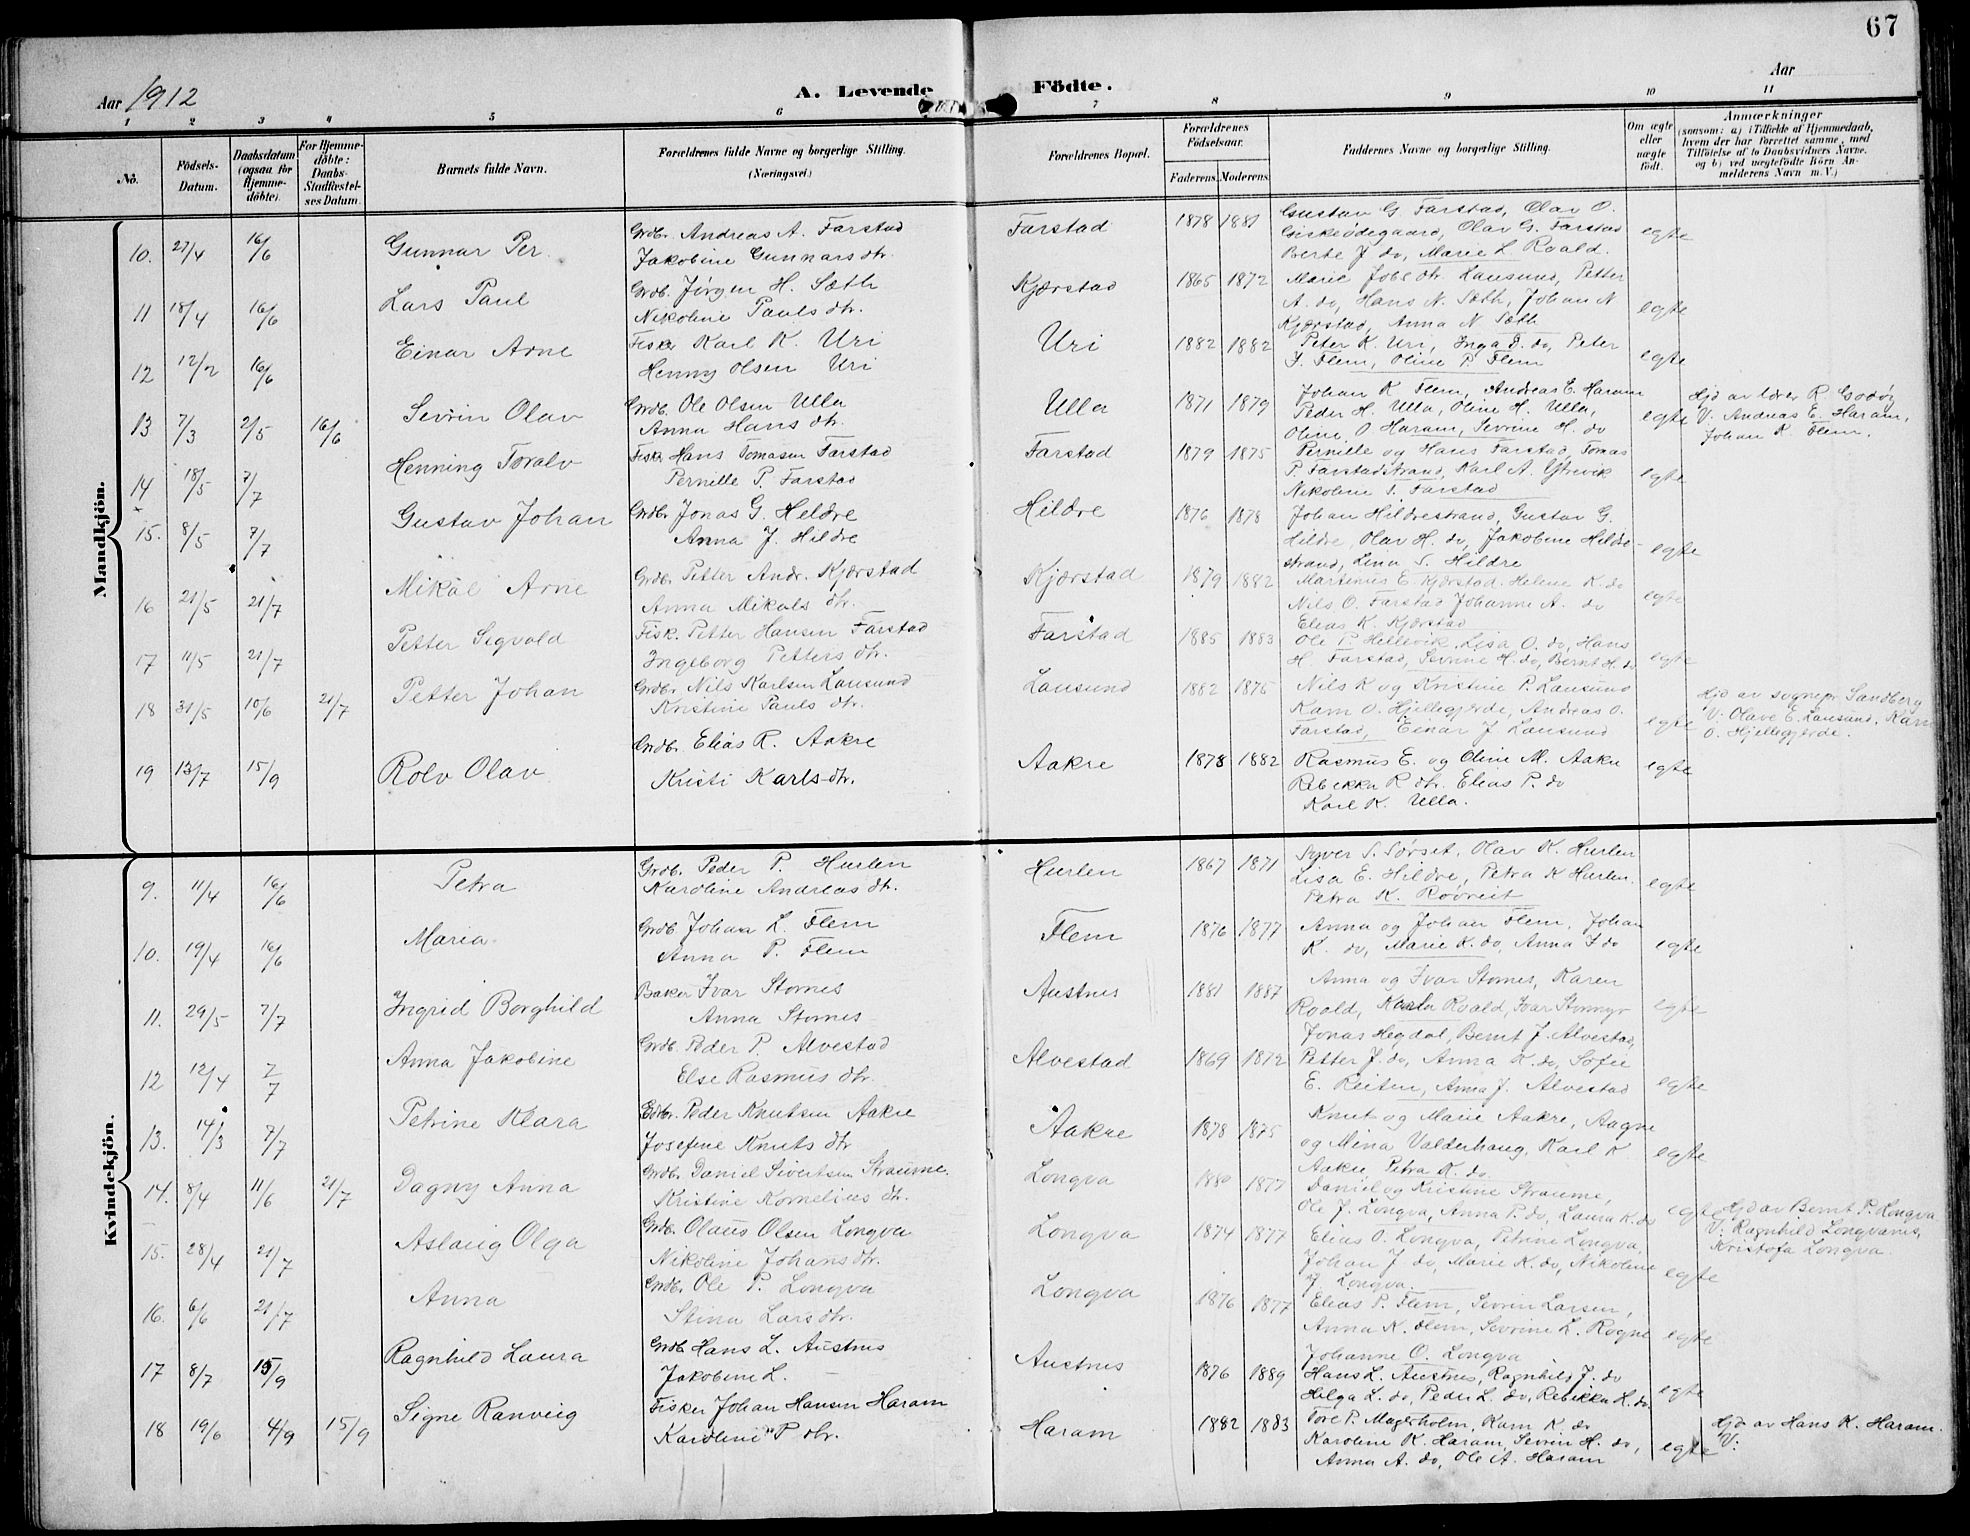 67
Aar 1912
A. Levende Födte.
Aar
1 2 3 4 5 6 7 8 9 10 11
No.
Födsels-Datum.
Daabsdatum (ogsaa for Hjemme-döbte).
For Hjemme-döbte: Daabs-Stadfæstel-ses Datum.
Barnets fulde Navn.
Forældrenes fulde Navne og borgerlige Stilling.
(Næringsvei.)
Forældrenes Bopæl.
Forældrenes Födselsaar.
Faderens. Moderens.
Faddernes Navne og borgerlige Stilling.
Om ægte eller uægte födt.
Anmærkninger
(saasom: a) i Tilfælde af Hjemmedaab, hvem der har forrettet samme, med Tilföielse af to Daabsvidners Navne. og b) ved uægtefödte Börn An-melderens Navn m. V.)
Mandkjön.
10. 27/4 16/6 Gunnar Per. Grdbr. Andreas A. Farstad
Jakobine Gunnarsdtr. Farstad 1878 1881 Gustav G. Farstad, Olav O.
Giskeødegaard, Olav G. Farstad
Berte J do, Marie L Roald. egte
11 18/4 16/6 Lars Paul Grdb. Jörgen H. Sæth
Nikoline Pauls dtr. Kjærstad 1865 1872 Marie Jobs dtr. Lausund, Petter
A. do, Hans N. Sæth, Johan N
Kjærstad, Anna N Sæth egte
12 12/2 16/6 Einar Arne Fisker Karl K. Uri
Henny Olsen Uri Uri 1882 1882 Peter K. Uri, Inga I. do, Peter
J. Flem, Oline P. Flem egte
13 7/3 2/5 16/6 Sevrin Olav Grdb. Ole Olsen Ulla
Anna Hans dtr. Ulla 1871 1879 Johan K Flem, Andreas E. Haram
Peder H. Ulla, Oline H. Ulla,
Oline O Haram, Sevrine H. do egte Hjd av lærer R Godöy
V. Andreas E. Haram,
Johan K. Flem.
14 18/5 7/7 Henning Toralv Fisk. Hans Tomasen Farstad
Pernille P. Farstad Farstad 1879 1875 Pernille og Hans Farstad, Tomas
P. Farstadstrand, Karl A. Ytrevik
Nikoline T. Farstad egte
15. 8/5 7/7 Gustav Johan Grdbr. Jonas G. Heldre
Anna J. Hildre Hildre 1876 1878 Johan Hildrestrand, Gustav G.
Hildre, Olav H. do, Jakobine Hildre-
strand, Lina S. Hildre egte
16 21/5 21/7 Mikal Arne Grdb. Petter Andr. Kjærstad
Anna Mikals dtr. Kjærstad 1879 1882 Martenus E. Kjærstad, Helene K. do
Nils O. Farstad Johanne A. do
Elias K. Kjærstad egte
17 11/5 21/7 Petter Segvald Fisk. Petter Hansen Farstad
Ingeborg Petters dtr. Farstad 1885 1883 Ole P. Hellevik, Lisa O. do, Hans
H. Farstad, Sevrine H. do, Bernt H. do egte
18 31/5 10/6 21/7 Petter Johan Grdbr. Nils Karlsen Lausund
Kristine Pauls dtr. Lausund 1882 1875 Nils K og Kristine P. Lausund
Karn O. Hjellegjerde, Andreas O.
Farstad, Einar J Lausund egte Hjd av sognepr Sandberg
V: Olave E. Lausund, Karn
O. Hjellegjerde.
19 13/7 15/9 Rolv Olav Grdb. Elias R. Aakre
Kristi Karls-dtr. Aakre 1878 1882 Rasmus E. og Oline M. Aakre
Rebekka R dtr. Elias P. do
Karl K. Ulla. egte
Kvindekjön.
9. 11/4 16/6 Petra Grdb. Peder P. Hurlen
Karoline Andreas dtr. Hurlen 1867 1871 Syver S. Sörset, Olav K. Hurlen
Lisa E. Hildre, Petra K Hurlen.
Petra K. egte
10. 19/4 16/6 Maria Grdb Johan L. Flem
Anna P. Flem Flem 1876 1877 Anna og Johan Flem, Johan
K. do, Marie K. do, Anna I do egte
11. 29/5 7/7 Ingrid Borghild Baker Ivar Stornes
Anna Stornes Austnes 1881 1887 Anna og Ivar Stornes, Karen
Roald, Roald, Ivar
egte
12 12/4 7/7 Anna Jakobine Grdb. Peder P. Alvestad
Else Rasmus dtr. Alvestad 1869 1872 Jonas Hegdal, Bernt J. Alvestad,
Petter J. do, Anna K. do, Sofie
E. Reiten, Anna J. Alvestad egte
13. 14/3 7/7 Petrine Klara Gdbr. Peder Knutsen Aakre
Josefine Knuts dtr Aakre 1878 1875 Knut og Marie Aakre, Aagne
og Mina Valderhaug, Karl K
Aakre, Petra K. do egte
14. 8/4 11/6 21/7 Dagny Anna Grdbr. Daniel Sivertsen Straume.
Kristine Kornelius dtr. Longva 1880 1877 Daniel og Kristine Straume,
Ole J. Longva, Anna P. do, Laura K. do egte Hjd av Bernt P. Longva
V: Ragnhild Longvanes,
Kristofa Longva.
15. 28/4 21/7 Aslaug Olga Grdb. Olaus Olsen Longva
Nikoline Johans dtr. Longva 1874 1877 Elias O. Longva, Petrine Longva,
Johan J do, Marie K. do, Nikoline
J. Longva. egte
16. 6/6 21/7 Anna Grdbr. Ole P. Longva
Stina Lars dtr. Longva 1876 1877 Elias P. Flem, Sevrin Larsen,
Anna K. Flem, Sevrine L. Rogne
Johanne O. Longva egte
17 8/7 15/9 Ragnhild Laura Grdb Hans L. Austnes
Jakobine L. Austnes 1876 1889 Hans L. Austnes, Ragnhild J. do
Helga L. do, Peder L. do, Rebekka H. do egte
18 19/6 4/9 15/9 Signe Ranveig Fisker Johan Hansen Haram
Karoline P dtr. Haram 1882 1883 Tore P. Magerholm, Karn K. do
Karoline K. Haram, Sevrin H. do,
Anna A. do, Ole A. Haram egte Hjd av Hans K. Haram.
V: